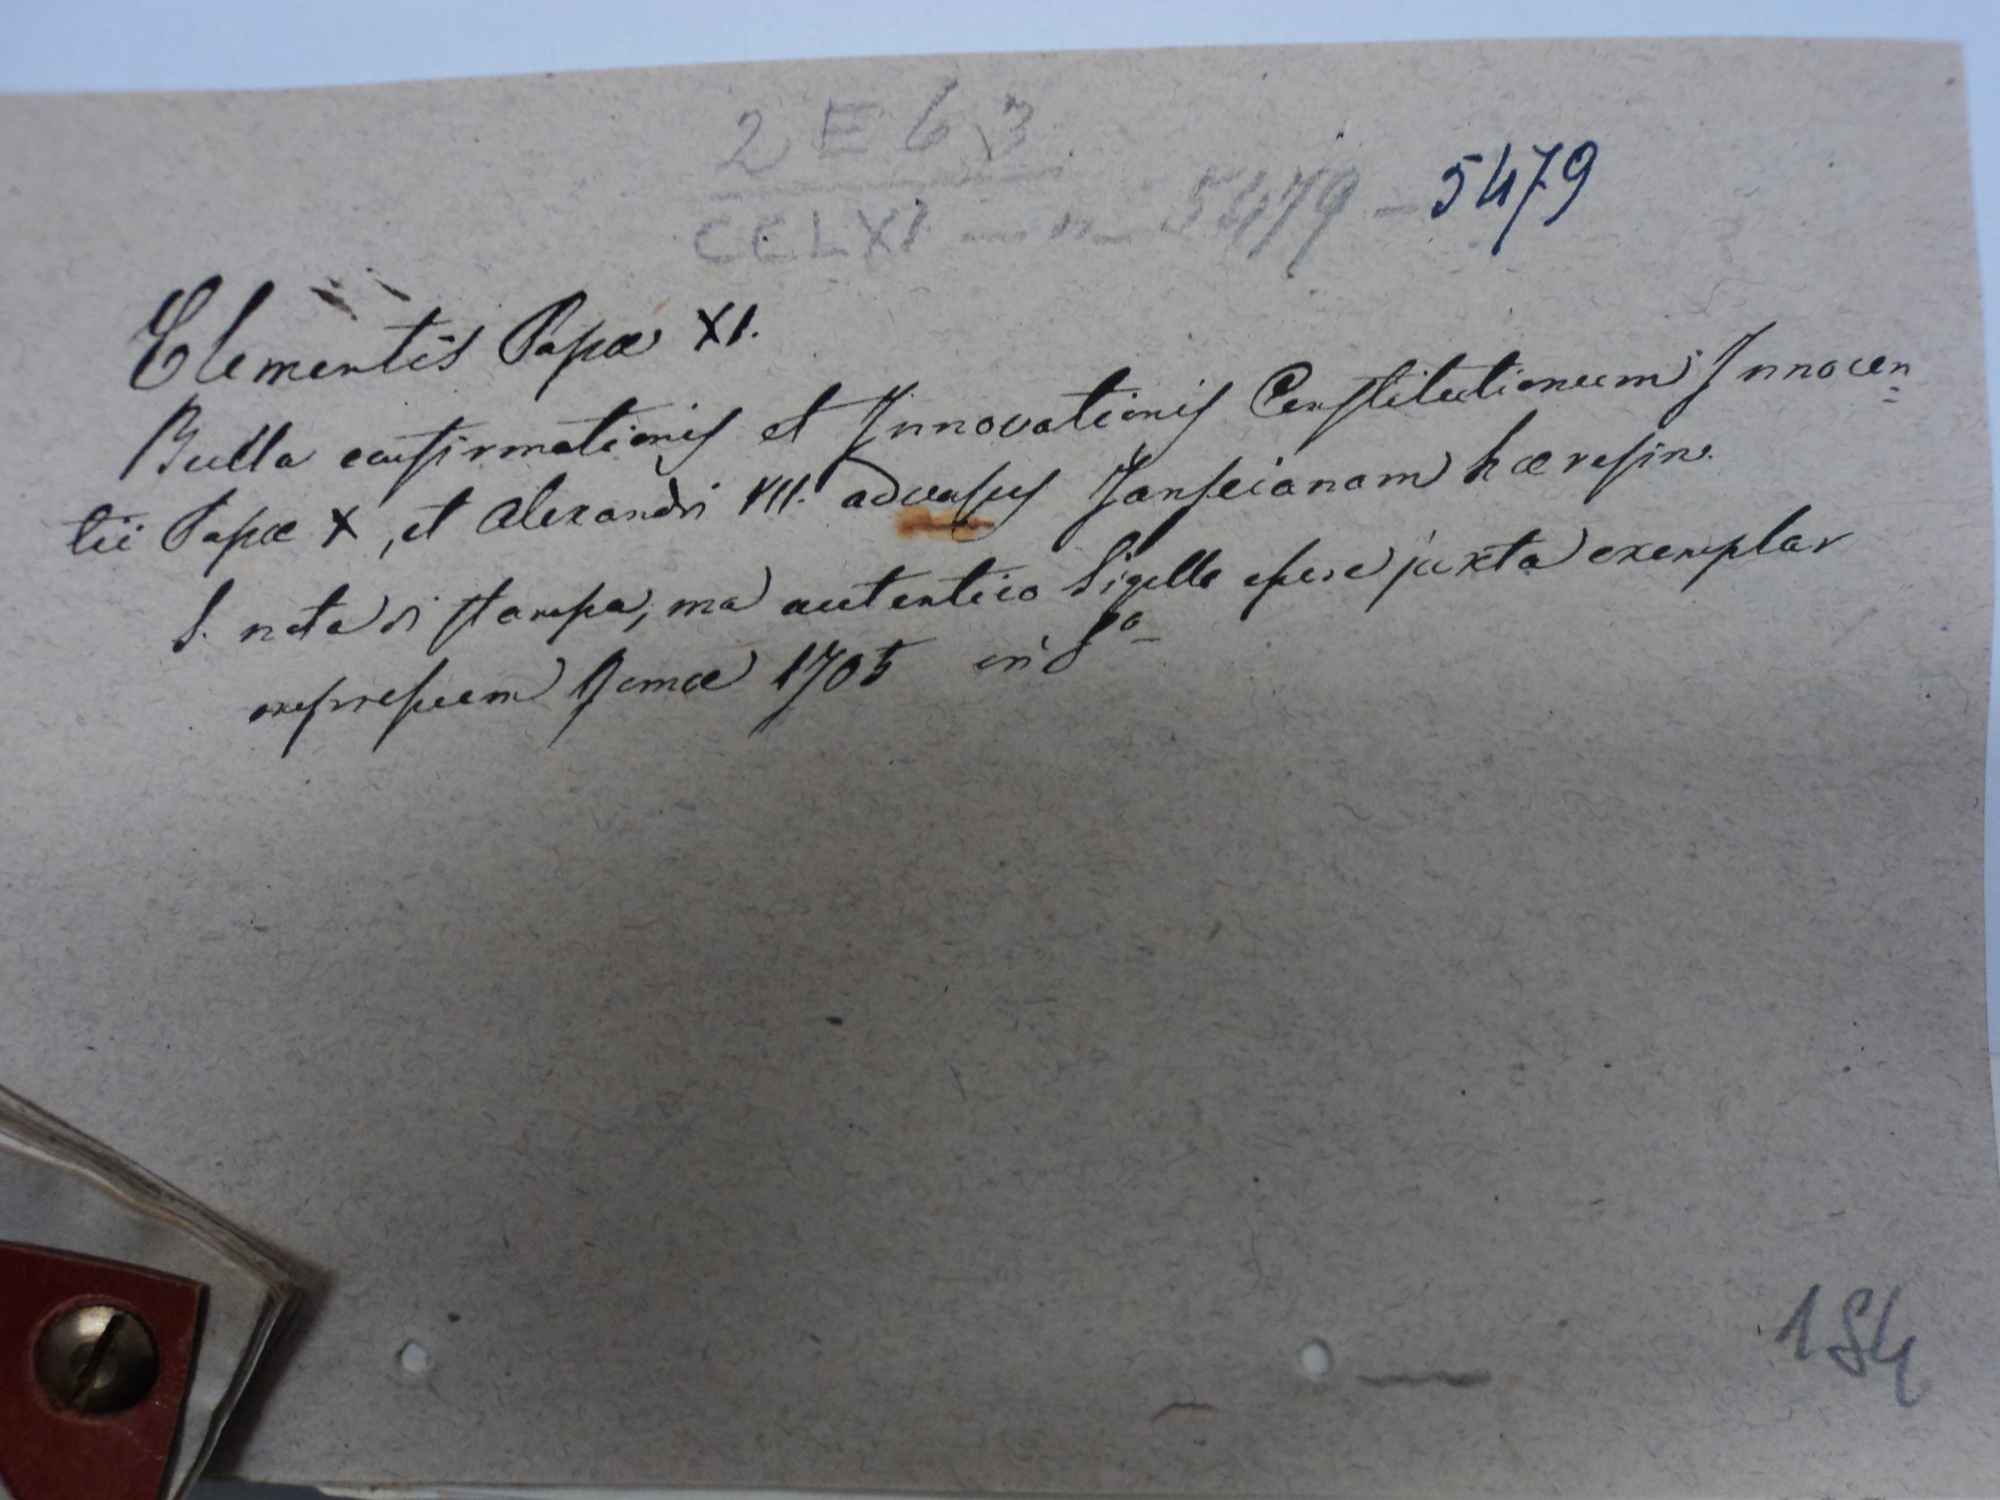 2 E 63
CCLXI — " — 5479 – 5479
Clementis Papæ XI.
Bulla confirmationis et Innovationis Constitutionum Innocen=
tii Papæ X, et Alexandri VII. adversus Janseianam hæresin.
S. nota di stampa, ma autentico Sigello juxta exemplar
impressum Romæ 1705 in 8º
184